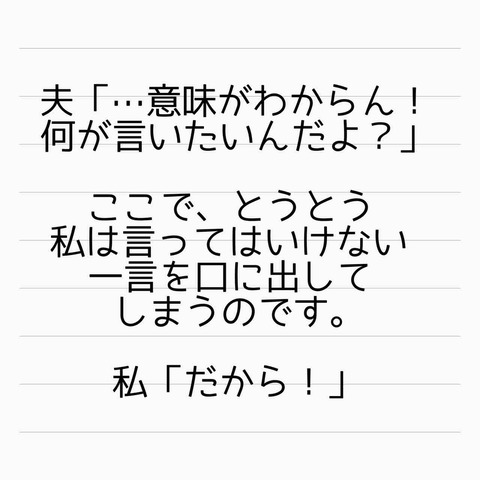 夫「…意味がわからん！
何が言いたいんだよ？」
ここで、とうとう
私は言ってはいけない
一言を口に出して
しまうのです。
私「だから！」